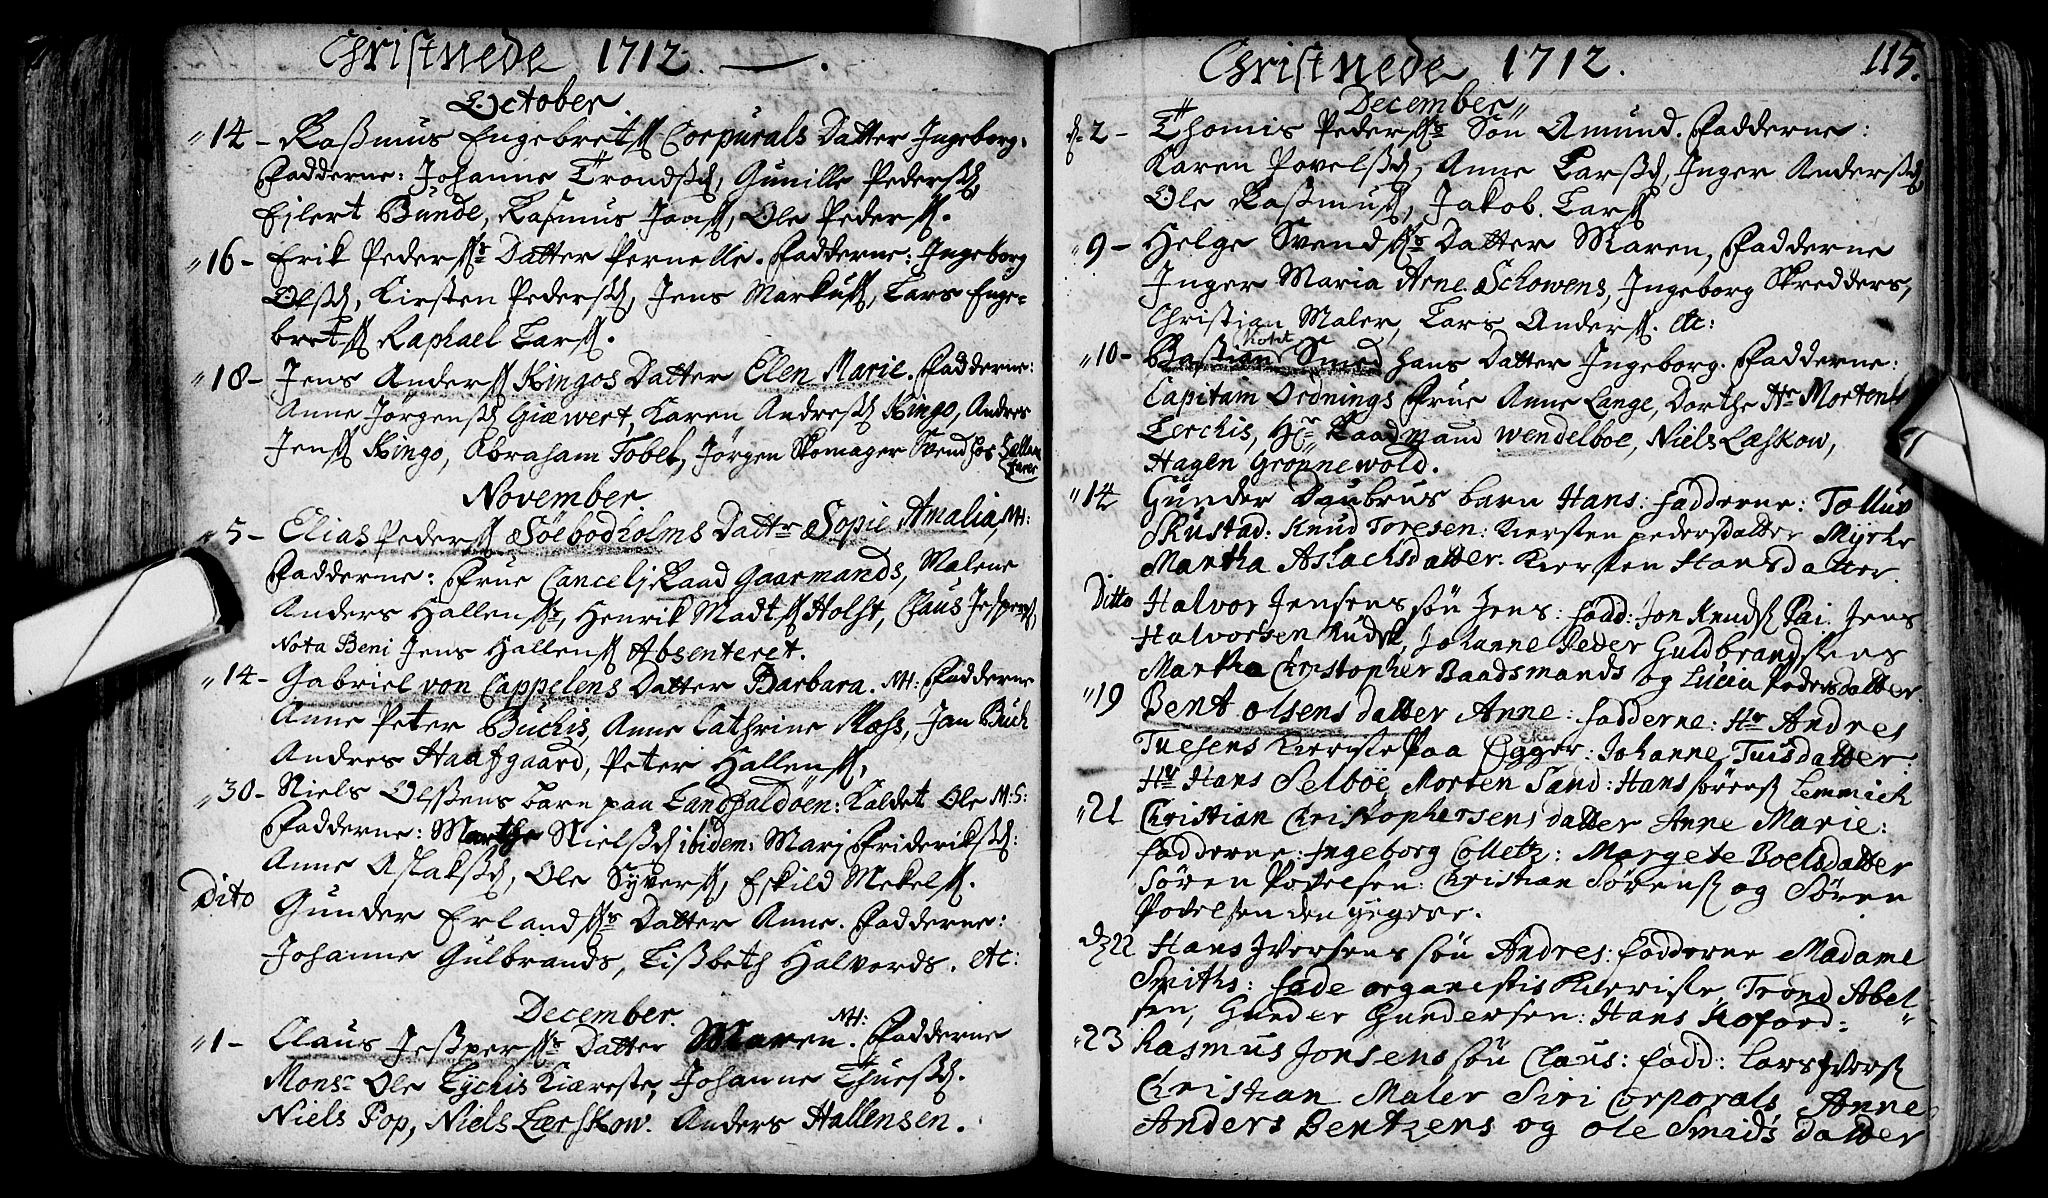 Christnede 1712.
October
14 - Rasmus Engebrets Corpurals Datter Ingeborg.
Fadderne: Johanne Tronds, Gunille Peders
Ejlert Bunde, Rasmus Jons, Ole Peders.
16 - Erik Peders Datter Pernelle. Fadderne: Ingeborg
Ols, Kirsten Peders, Jens Markus, Lars Enge-
brets Raphael Lars.
18 - Jens Anders Kingos Datter Elen Marie. Fadderne:
Anne Jørgens Giæwert, Karen Andres Kingo, Andres
Jens Kingo, Abraham Tobel, Jørgen Skomager Svend hos
November.
5 - Elias Peders Søebodholms Datter Sopie Amalia, NH:
Fadderne: Frue Cancelj Raad Gaarmands, Malene
Anders Hallens, Henrik Madts Holst, Claus Jespers,
Nota Beni Jens Hallens Absenteret.
14 - Gabriel von Cappelens Datter Barbara. NH: Fadderne
Anne Peter Buchis, Anne Cathrine Moss, Jan Buch
Andres Haafgaard, Peter Hallens,
30 - Niels Olsens barn paa Landfaldøen: Kaldet Ole M:S:
Fadderne: Marthe Niels ibidem: Marj Frideriks:
Anne Aslaks, Ole Syvers, Eskild Mekels.
Dito Gunder Erlands Datter Anne. Fadderne:
Johanne Gulbrands, Lisbeth Halvords. etc:
December.
1 - Claus Jespers Datter Maren. NH: Fadderne
Monsr Ole Lychis Kiæreste, Johanne Thues.
Niels Pop, Niels Lærskow. Anders Hallensen.
Christnede 1712. 115.
December
2 - Thomis Peders Søn Amund. Fadderne:
Karen Povels, Anne Lars, Inger Anders
Ole Rasmus, Jakob Lars
9 - Helge Svends Datter Maren, Fadderne
Inger Maria Arne Schowens, Ingeborg Skredders,
Christian Maler, Lars Anders. etc:
10 - Bastian Smed hans Datter Ingeborg. Fadderne:
Capitain Ordnings Frue Anne Lange, Dorthe Hr Mortens
Lerchis, Hr Raadmand Wendelboe, Niels Læskow,
Hagen Gronnewold.
14 Gunder Daubrus barn Hans: fadderne: Tolluv
Skustad: Knud Toresen: Kiersten pedersdatter Myrhr
Martha Aslachsdatter. Kiersten Hansdatter.
Ditto Halvor Jensens søn Jens: fadd: Jon Knuds Pai. Jens
Halvorsen Kudsk, Johanne Peder Guldbrandsens
Martha Christopher Baadsmands og Lucia Pedersdatter
19 Bent olsens datter Anne: fadderne: Hr Andres
Tuesens Kieriste paa Egger: Johanne Tuisdatter.
Hr Hans Selboe, Morten Sand: Hans Sørens Lemmich
21 Christian Christophersens datter Anne Marie:
fadderne: Ingeborg Colletz: Margete Boelsdatter
Søren Povelsen: Christian Sørens og Søren
Povelsen den yngere.
22 Hans Iversens søn Andres: fadderne Madame
Smiths: fade organistis Kieriste, Trond Abel-
sen, Gunder Gundersen: Hans Koford:
23 Rasmus Jonsens søn Claus: fadd: Lars Ivers
Christian Maler Siri Corporals, Anne
Anders Bentzens og Ole Smids datter